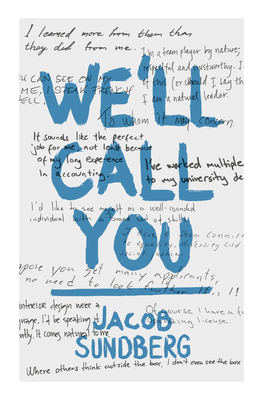 I learned more from them than
they did from me.
I'm a team player by nature;
YOU CAN SEE ON MY
I SPEAK FRENCH
I am a natural leader.
To whom it may concern.
WE'LL
It sounds like the perfect
job for me, not least because
of my long experience
in accounting.
I've worked multiple
to my university
CALL
I'd like to see myself as a well-rounded
individual with a broad set of skills
YOU
to equality, diversity and
you get many applicants,
no need to look further
interior design were a
I'd be speaking it
It comes natural to me
Of course I have a
driving license.
JACOB
SUNDBERG
Where others think outside the box, I don't even see the box